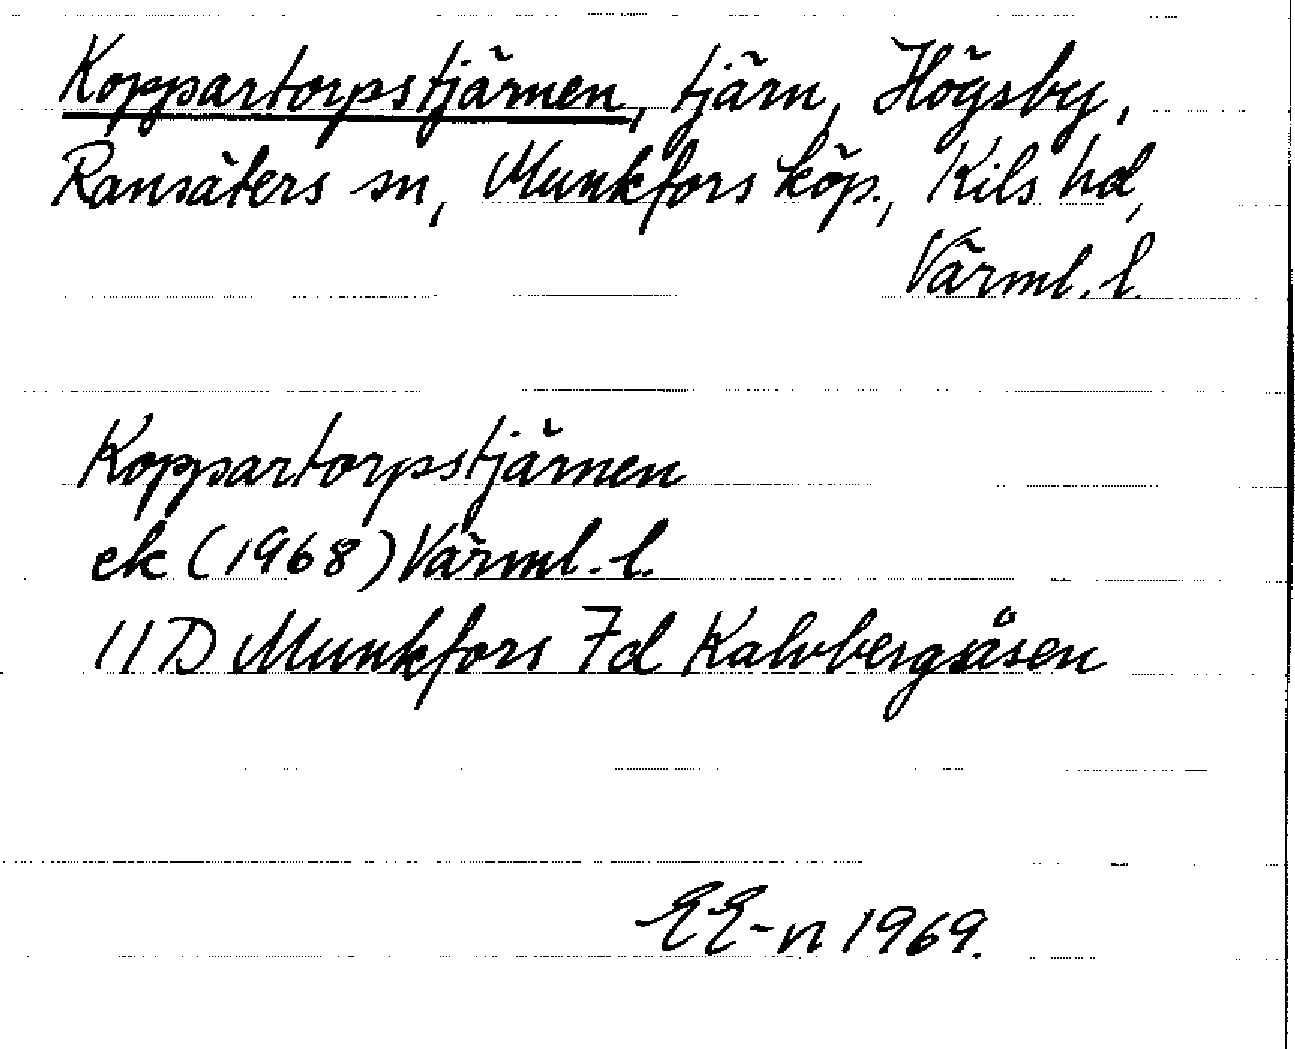 Koppartorpstjärnen, tjärn, Högsby,
Ransäters sn, Munkfors köp., Kils hd,
Värml. l.
Koppartorpstjärnen
ek (1968) Värml. l.
11 D Munkfors 7d Kalvbergsåsen
EE-n 1969.